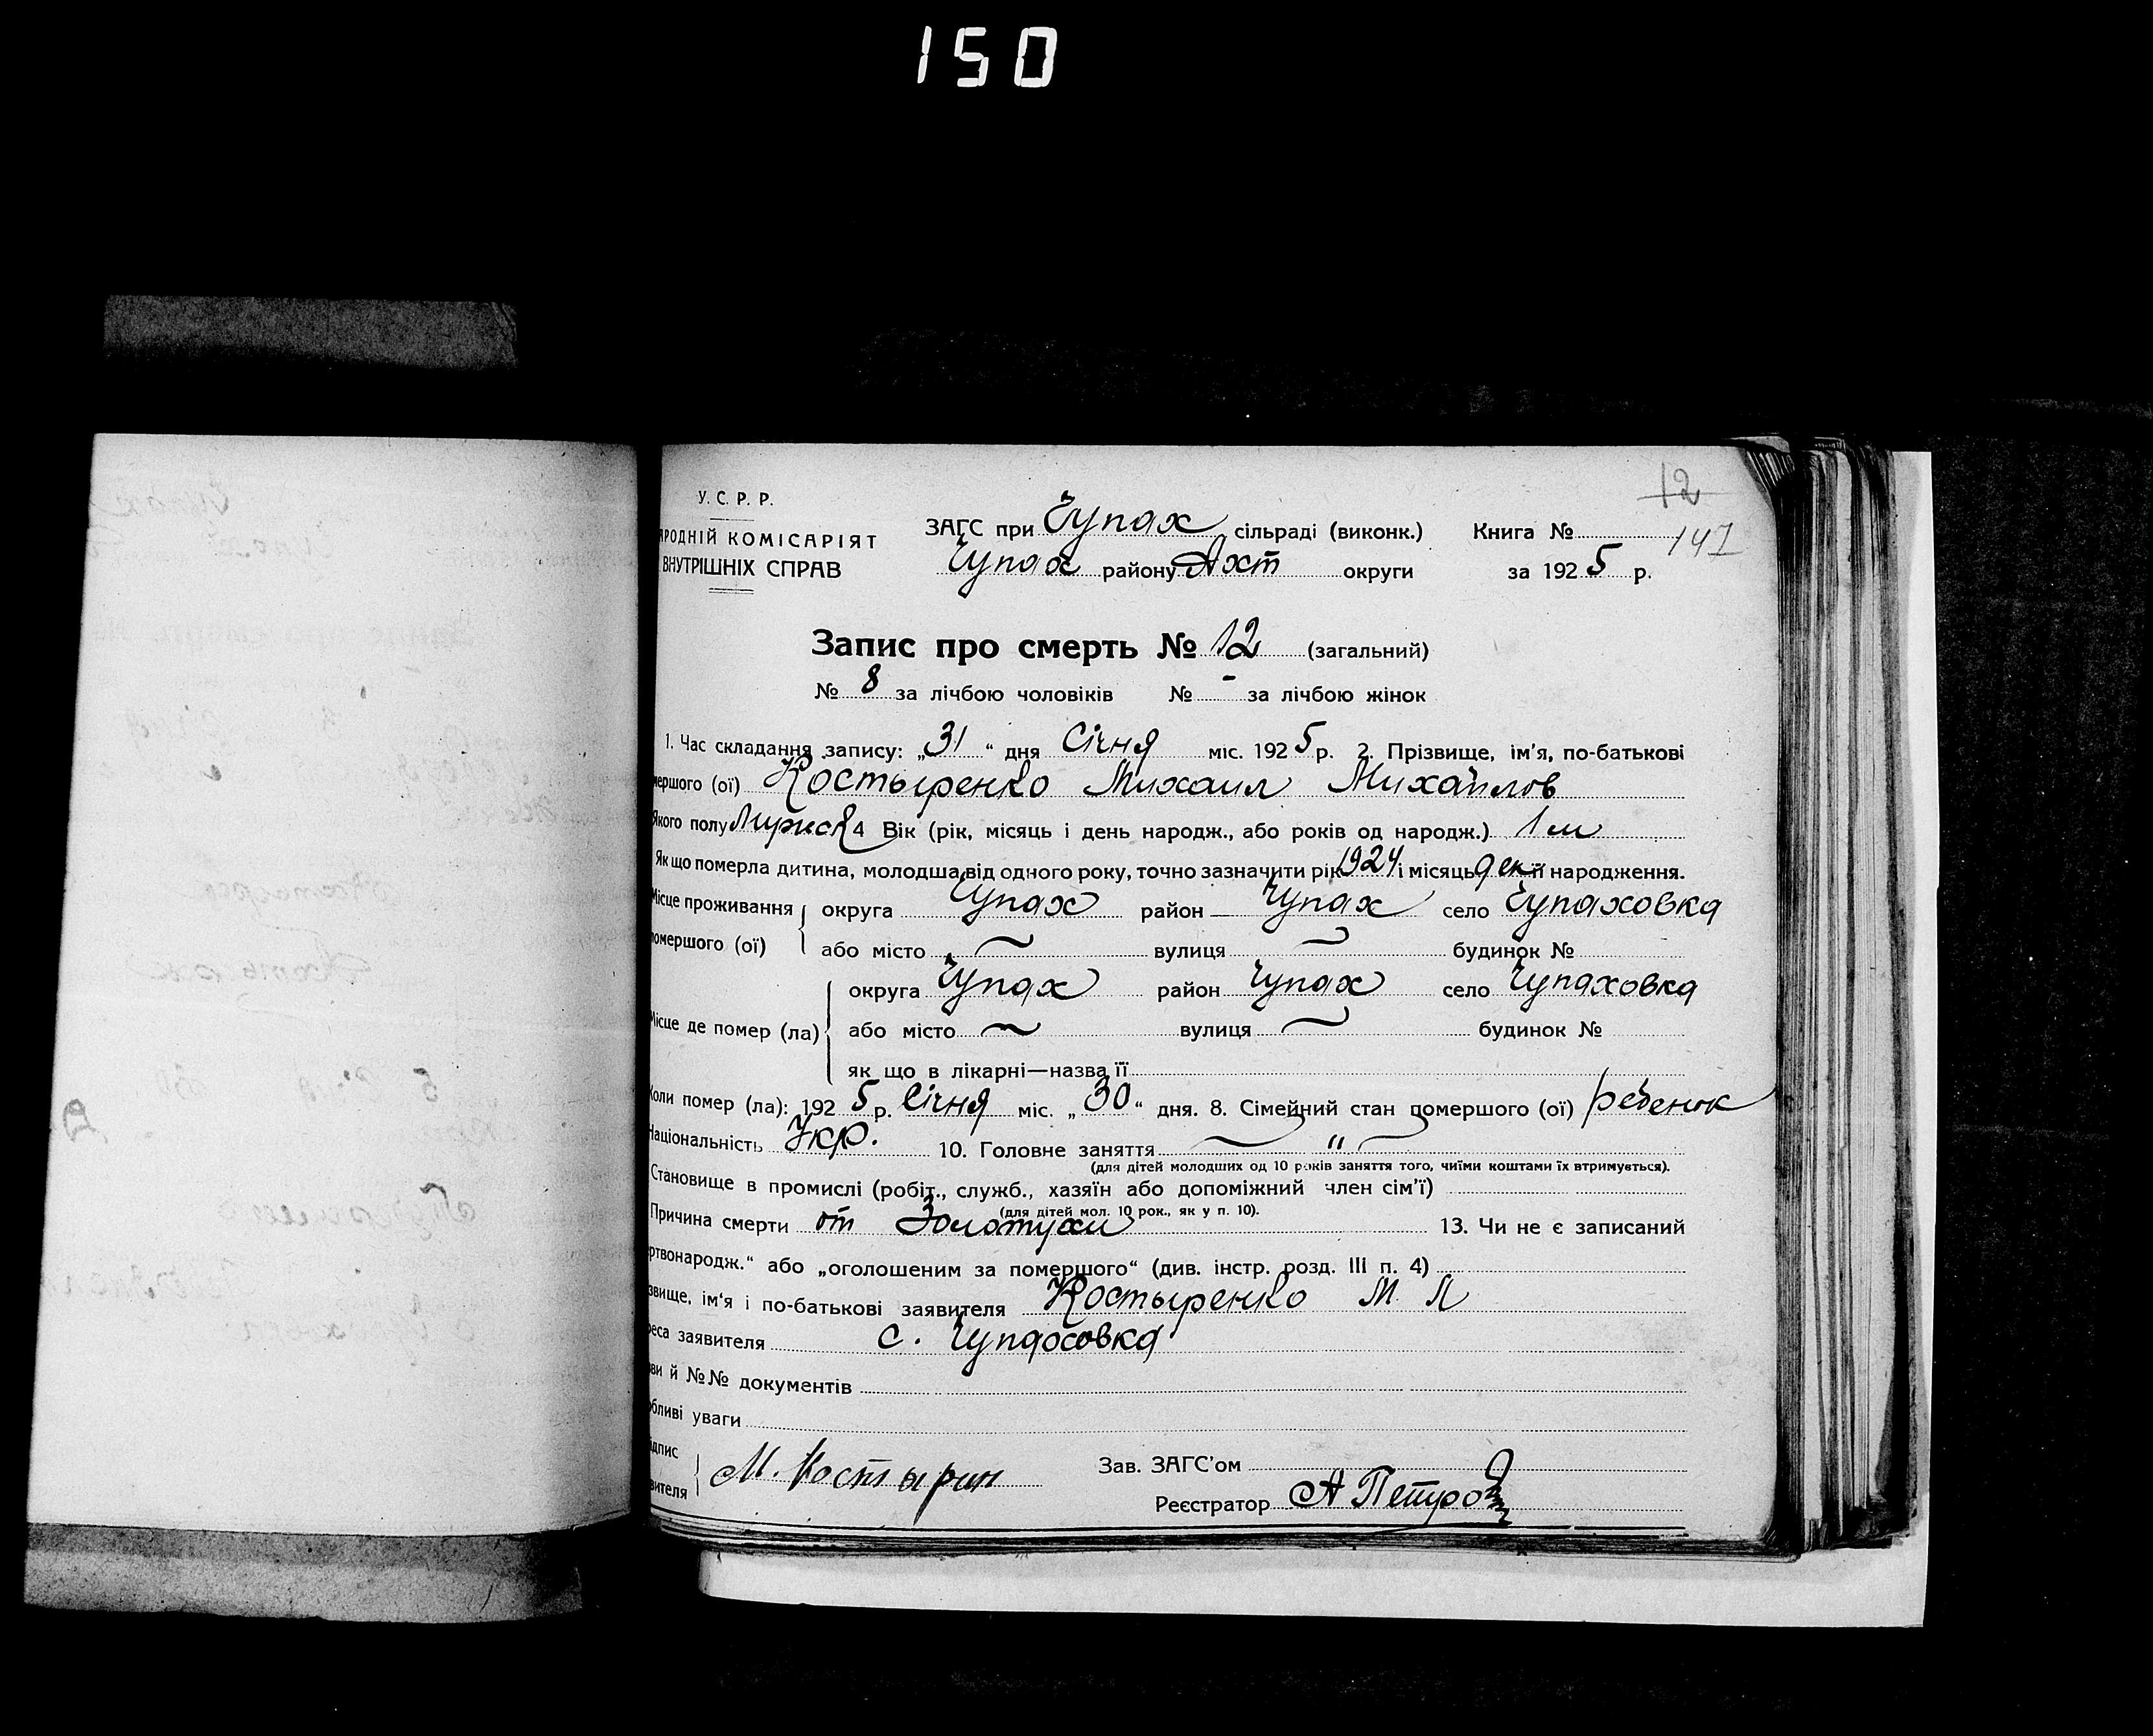 150
12
У. С. Р. Р.
АРОДНІЙ КОМІСАРІЯТ
ВНУТРІШНІХ СПРАВ
ЗАГС при Чупах сільраді (виконк.) Книга № 147
Чупах району Ахт округи за 1925 р.
Запис про смерть № 12 (загальний)
№ 8 за лічбою чоловіків № - за лічбою жінок
1. Час складання запису: „31" дня Січня міс. 1925 р. 2. Прізвище, ім'я, по-батькові
мершого (ої) Костыренко Михаил Михайлов
Якого полу 4 Вік (рік, місяць і день народж., або років од народж.) 1 м
Як що померла дитина, молодша від одного року, точно зазначити рік 1924 і місяць дек її народження.
Місце проживання округа Чупах район Чупах село Чупаховка
помершого (ої) або місто ~ вулиця ~ будинок №
округа Чупах район Чупах село Чупаховка
Місце де помер (ла) або місто ~ вулиця ~ будинок №
як що в лікарні—назва її
Коли помер (ла): 1925 р. Січня міс. „30" дня. 8. Сімейний стан помершого (ої) ребенок
Національність Укр. 10. Головне заняття ~ " ~
(для дітей молодших од 10 років заняття того, чиїми коштами їх втримується).
Становище в промислі (робіт., служб., хазяїн або допоміжний член сім'ї)
(для дітей мол. 10 рок., як у п. 10).
Причина смерти от Золотухи 13. Чи не є записаний
ертвонародж." або „оголошеним за помершого" (див. інстр. розд. III п. 4)
звище, ім'я і по-батькові заявителя Костыренко М Л
реса заявителя с. Чупаховка
ви й №№ документів
обливі уваги
ідпис
вителя М. Костырин
Зав. ЗАГС'ом
Реєстратор А